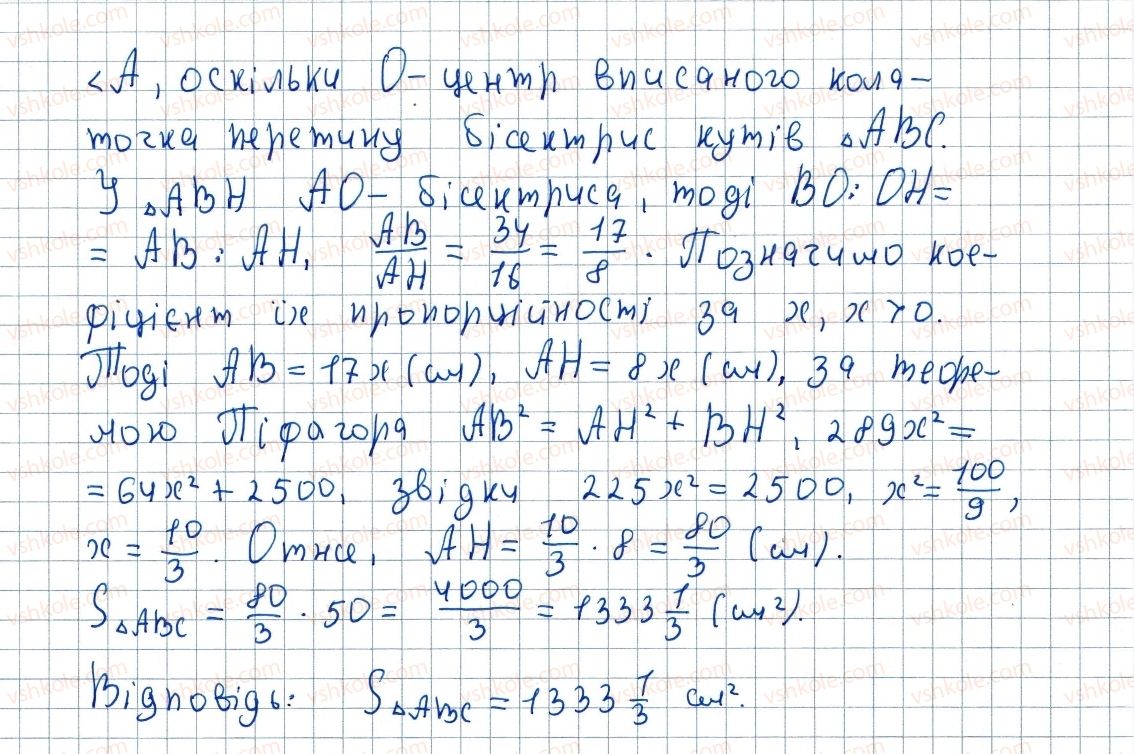 <A, оскільки O – центр вписаного кола –
точка перетину бісектрис кутів △ABC.
У △ABH AO – бісектриса, тоді BO : OH =
= AB : AH, AB/AH = 34/16 = 17/8. Позначимо кое-
фіцієнт їх пропорційності за x, x > 0.
Тоді AB = 17x (см), AH = 8x (см). За теоре-
мою Піфагора AB² = AH² + BH², 289x² =
= 64x² + 2500, звідки 225x² = 2500, x² = 100/9,
x = 10/3. Отже, AH = 10/3 · 8 = 80/3 (см).
S△ABC = 80/3 · 50 = 4000/3 = 1333 1/3 (см²).
Відповідь: S△ABC = 1333 1/3 см².